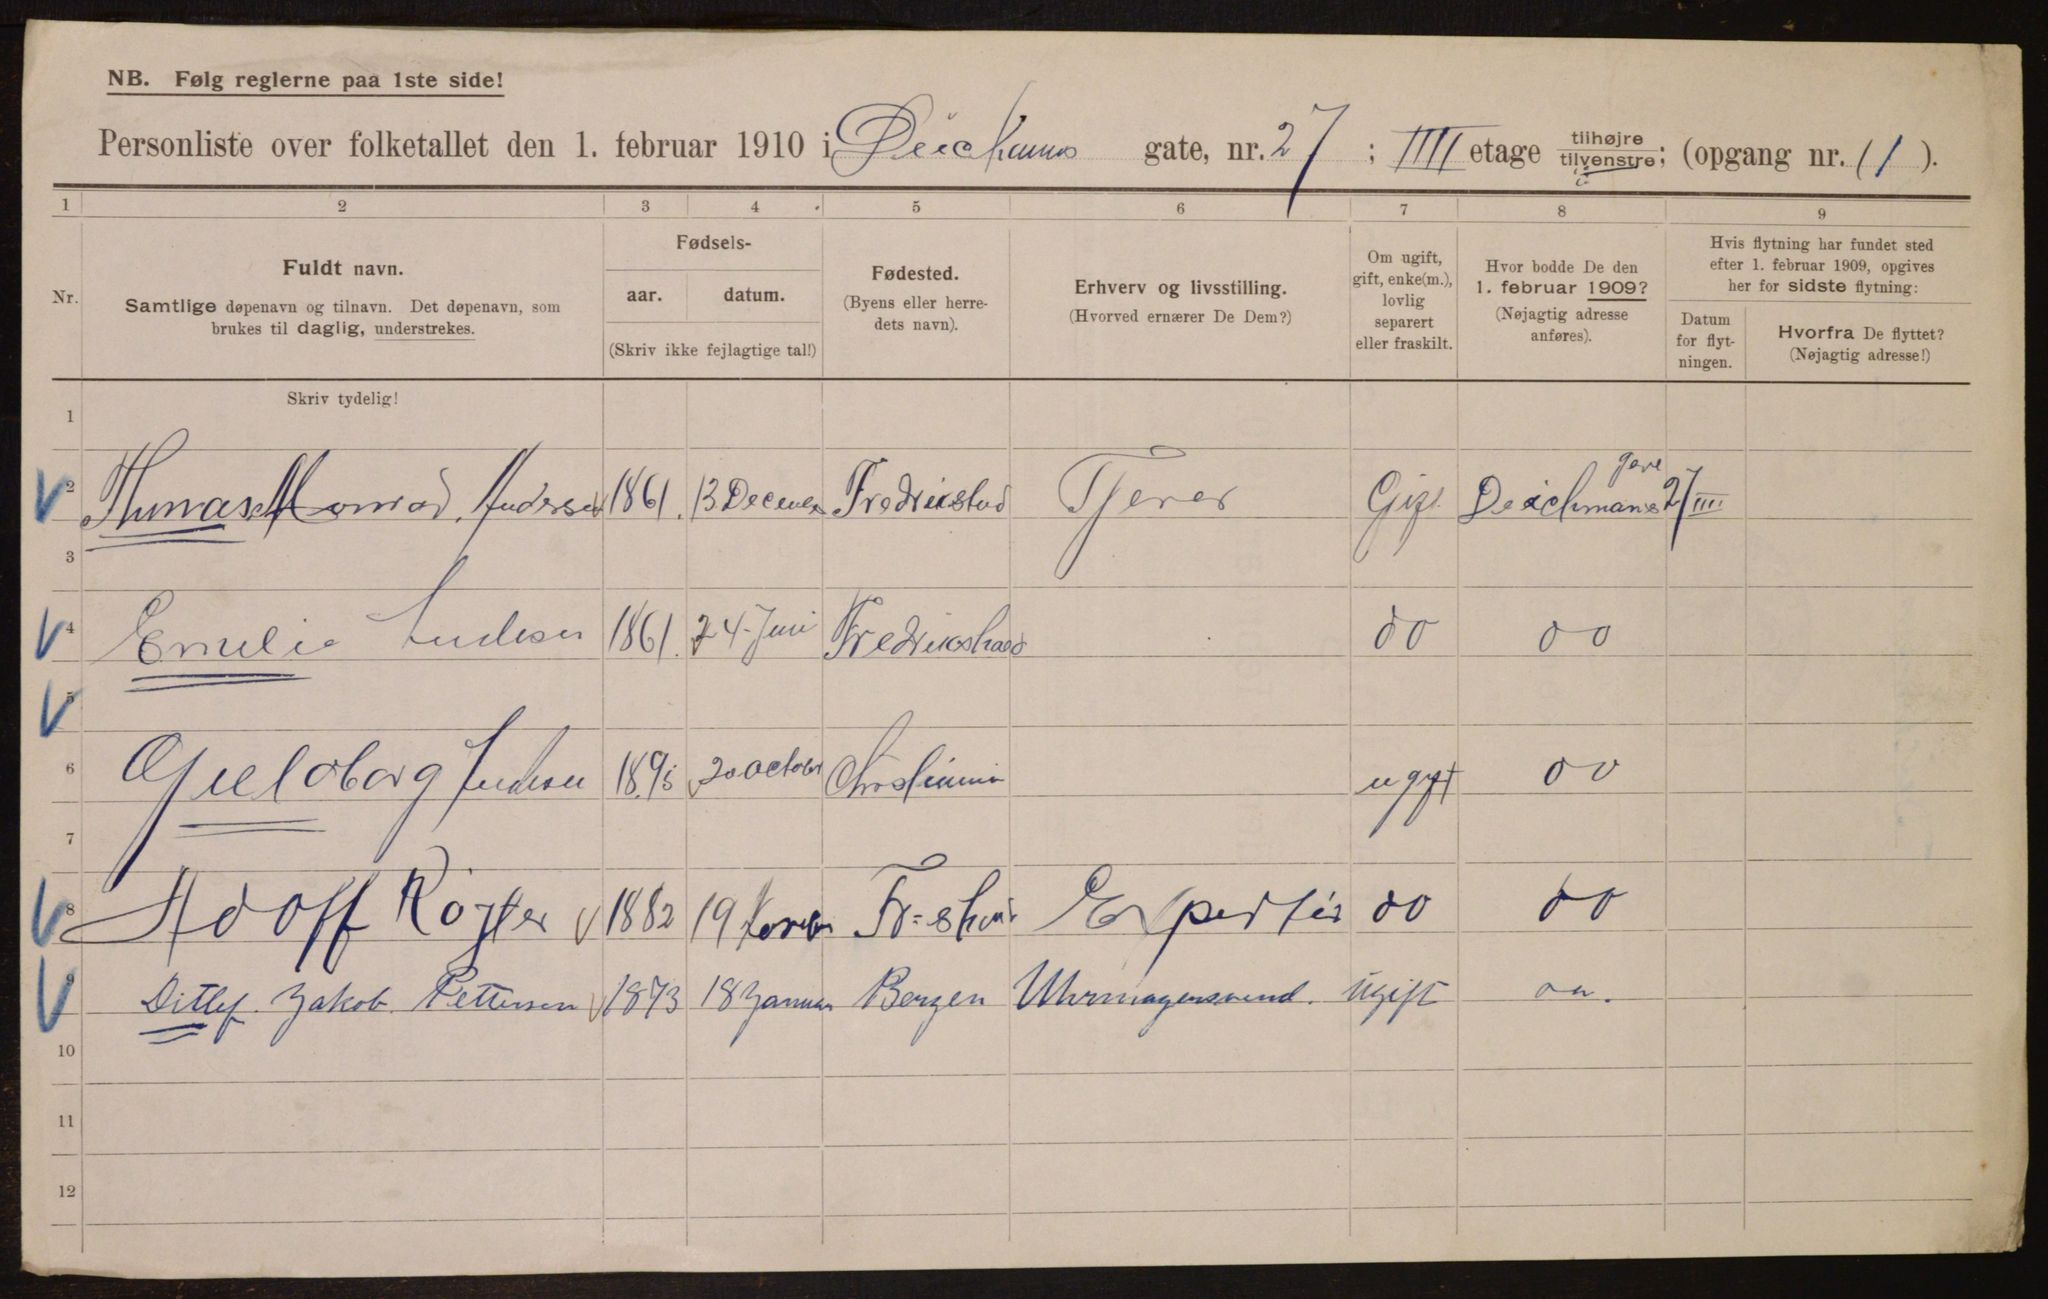 NB. Følg reglerne paa 1ste side!
Personliste over folketallet den 1. februar 1910 i Deichmans gate, nr. 27; IIII etage tilhøjre tilvenstre; (opgang nr. 1).
1 2 3 4 5 6 7 8 9
Nr.
Fuldt navn.
Samtlige døpenavn og tilnavn. Det døpenavn, som
brukes til daglig, understrekes.
Fødsels-
aar. datum.
(Skriv ikke fejlagtige tal!)
Fødested.
(Byens eller herre-
dets navn).
Erhverv og livsstilling.
(Hvorved ernærer De Dem?)
Om ugift,
gift, enke(m.),
lovlig
separert
eller fraskilt.
Hvor bodde De den
1. februar 1909?
(Nøjagtig adresse
anføres).
Hvis flytning har fundet sted
efter 1. februar 1909, opgives
her for sidste flytning:
Datum
for flyt-
ningen.
Hvorfra De flyttet?
(Nøjagtig adresse!)
Skriv tydelig!
1
2 Thomas Konrad. Andersen 1861. 13 Decemer Fredrikstad Gift Deichmans 27 IIII
3
4 Emelie Andersen 1861. 24 Juni Fredrikshald do do
5
6 Andersen 1895 20 october Christiania ugift do
7
8 Adolf 1882 19 Fr=shald Expeditør do do
9 Ditlef Jakob Pettersen 1873 18 Januar Bergen Uhrmagersvend. ugift
10
11
12